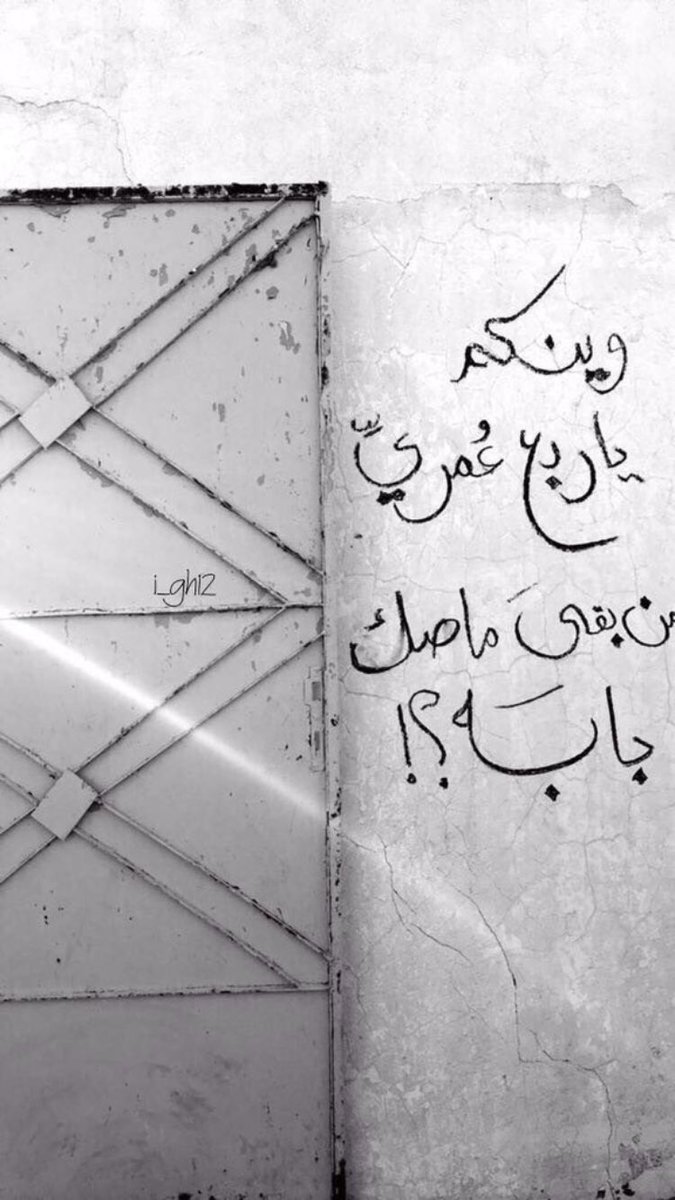 وينكم
يا ربع عُمريِّ
من بقىَ ما صك
بابـَه ؟!
i_gh12